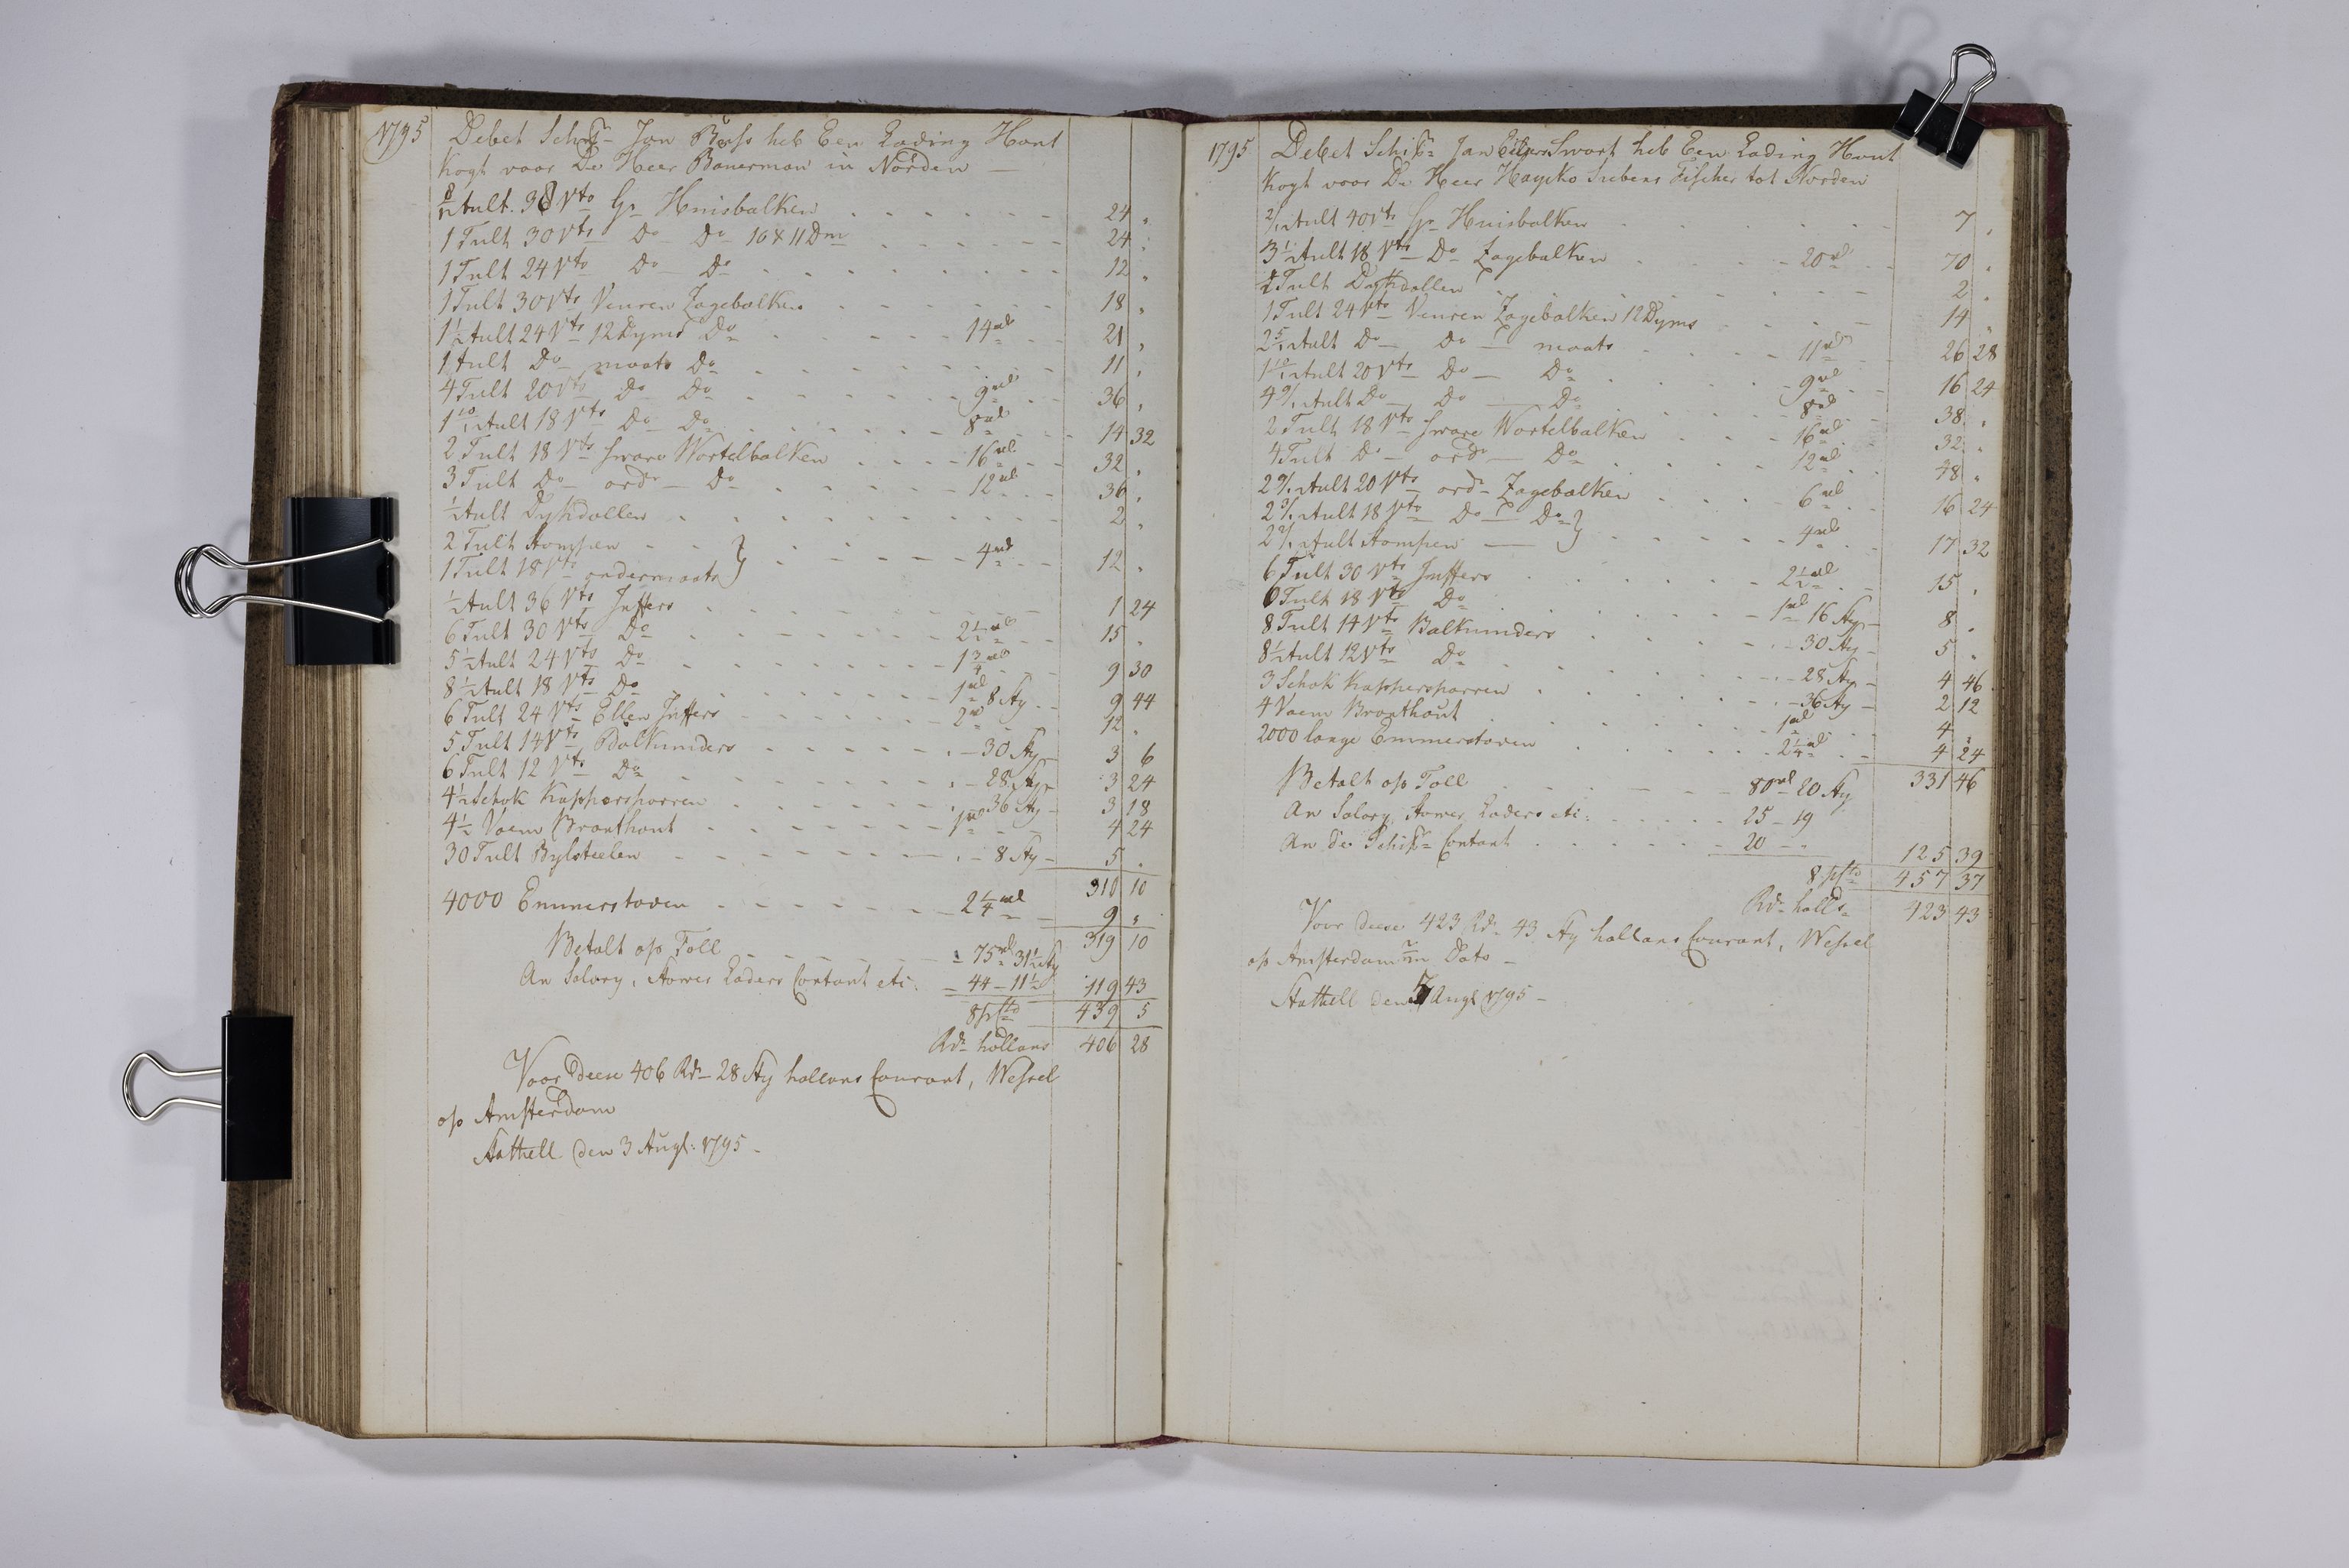 1795 Debet Schipr Jan Buss heb Een Lading Hout
kogt voor De Heer Bauerman in Norden —
8/12 Tult 38 Vts Gr Huisbalken 24 "
1 Tult 30 Vts Do Do 10 & 11 Dm 24 "
1 Tult 24 Vts Do Do 12 "
1 Tult 30 Vts Veuren Zagebalken 18 "
1½ Tult 24 Vts 12 Dyms Do 14 rd 21 "
1 Tult Do maats Do 11 "
4 Tult 20 Vts Do Do 9 rd 36 "
1 10/12 Tult 18 Vts Do Do 8 rd 14 32
2 Tult 18 Vts sware Wortelbalken 16 rd 32 "
3 Tult Do ordr Do 12 rd 36 "
½ Tult Dykdollen 2 "
2 Tult Stompen }
1 Tult 18 Vts ondermaats } 4 rd 12 "
½ Tult 36 Vts Juffers 1 24
6 Tult 30 Vts Do 2½ rd 15 "
5½ Tult 24 Vts Do 1¾ rd 9 30
8½ Tult 18 Vts Do 1 rd 8 Sty 9 44
6 Tult 24 Vts Ellen Juffers 2 rd 12 "
5 Tult 14 Vts Balkunders 30 Sty 3 6
6 Tult 12 Vts Do 28 Sty 3 24
4½ Schok Kappersparren 36 Sty 3 18
4½ Vaem Branthout 1 rd 4 24
30 Tult Bylsteelen 8 Sty 5 "
310 10
4000 Emmerstaven 2¼ rd 9 "
319 10
Betalt op Toll 75 rd 31½ Sty
An Salary, Stower Laders Contant etc: 44 – 11½ 119 43
8 pCto 439 5
Rdr hollans 406 28
Voor deese 406 Rdr 28 Sty hollans Courant, Wessel
op Amsterdam
Stathell den 3 Augt: 1795 –
1795 Debet Schipr Jan Eilers Swart heb Een Lading Hout
kogt voor De Heer Haycko Siebens Fischer tot Norden
2/12 Tult 40 Vts Gr Huisbalken 7 "
3½ Tult 18 Vts Do Zagebalken 20 rd 70 "
½ Tult Dykdollen 2 "
1 Tult 24 Vts Veuren Zagebalken 12 Dyms 14 "
2 5/12 Tult Do Do maats 11 rd 26 28
1 10/12 Tult 20 Vts Do Do 9 rd 16 24
4 9/12 Tult Do Do Do 8 rd 38 "
2 Tult 18 Vts sware Wortelbalken 16 rd 32 "
4 Tult Do ordr Do 12 rd 48 "
2 9/12 Tult 20 Vts ordr Zagebalken 6 rd 16 24
2 3/12 Tult 18 Vts Do Do }
2 5/12 Tult Stompen } 4 rd 17 32
6 Tult 30 Vts Juffers 2½ rd 15 "
6 Tult 18 Vts Do 1 rd 16 Sty 8 "
8 Tult 14 Vts Balkunders 30 Sty 5 "
8½ Tult 12 Vts Do 28 Sty 4 46
3 Schok Kappersparren 36 Sty 2 12
4 Vaem Branthout 1 rd 4 "
2000 lange Emmerstaven 2¼ rd 4 24
331 46
Betalt op Toll 80 rd 20 Sty
An Salary, Stower, Laders etc: 25 – 19
An De Schipr Contant 20 – " 125 39
8 pCto 457 37
Rdr hollr 423 43
Voor deese 423 Rdr 43 Sty hollans Courant, Wessel
op Amsterdam Dato –
Stathell den 5 Augt 1795 –